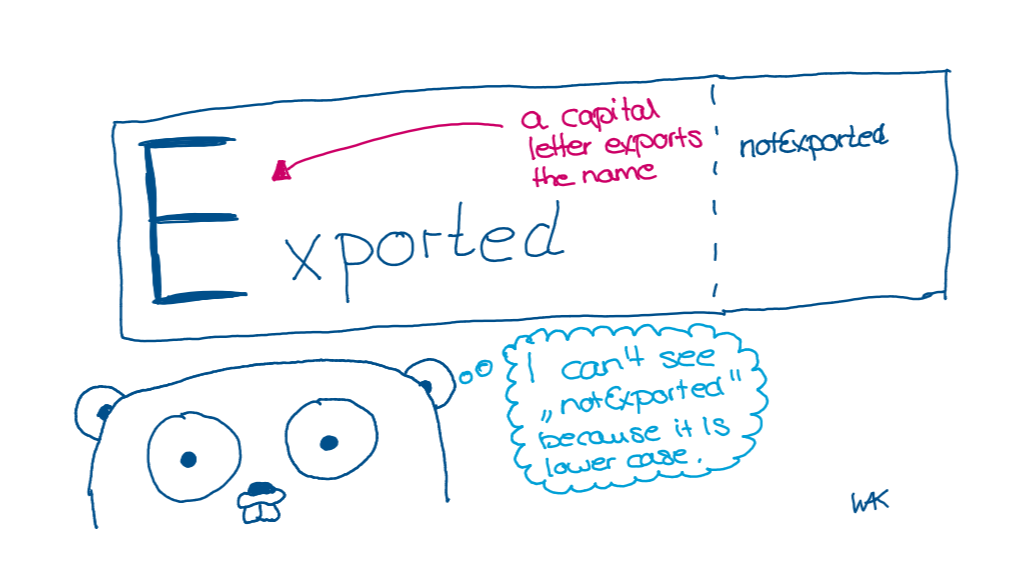 Exported
a capital
letter exports
the name
notExported
I can't see
„notExported"
because it is
lower case.
WAK